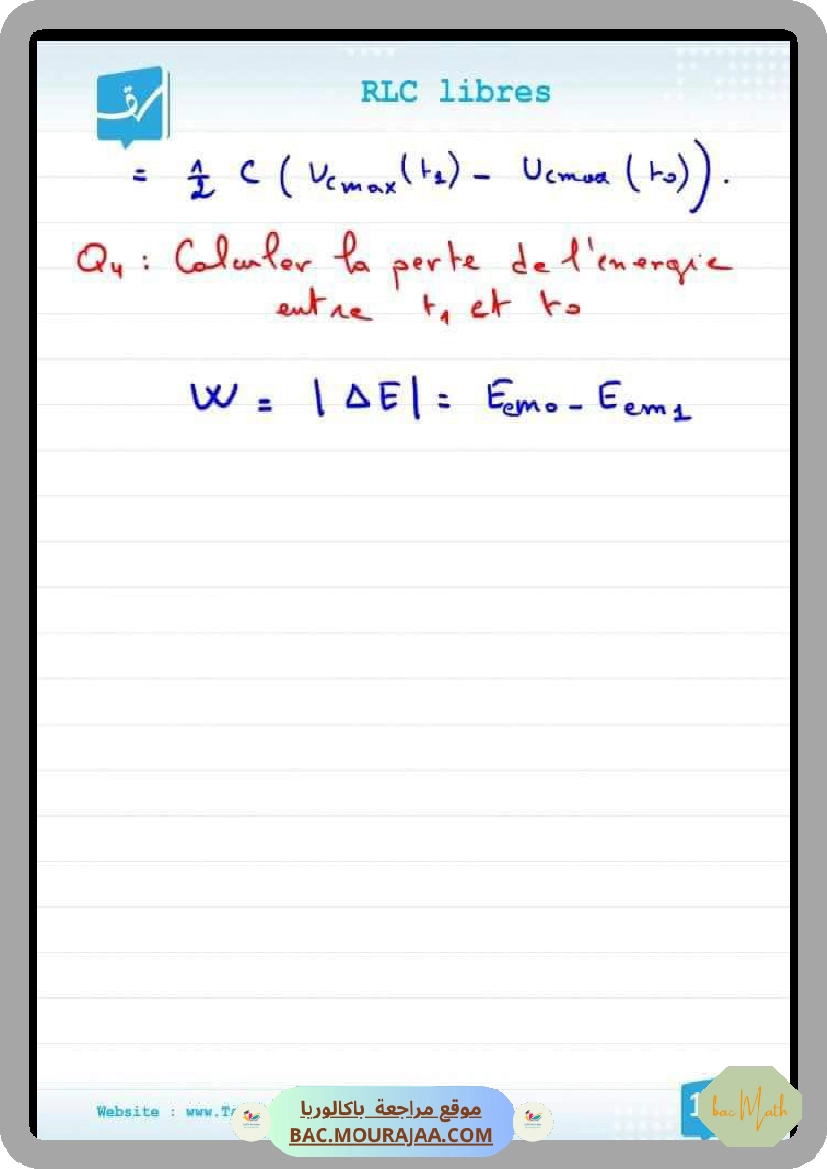 RLC libres
= 1/2 C ( Ucmax(t1) - Ucmax (t0)).
Q4 : Calculer la perte de l'énergie
entre t1 et t0
W = | ΔE| = Eemo - Eem1
Website : www.T
موقع مراجعة باكالوريا
BAC.MOURAJAA.COM
1
bac Math